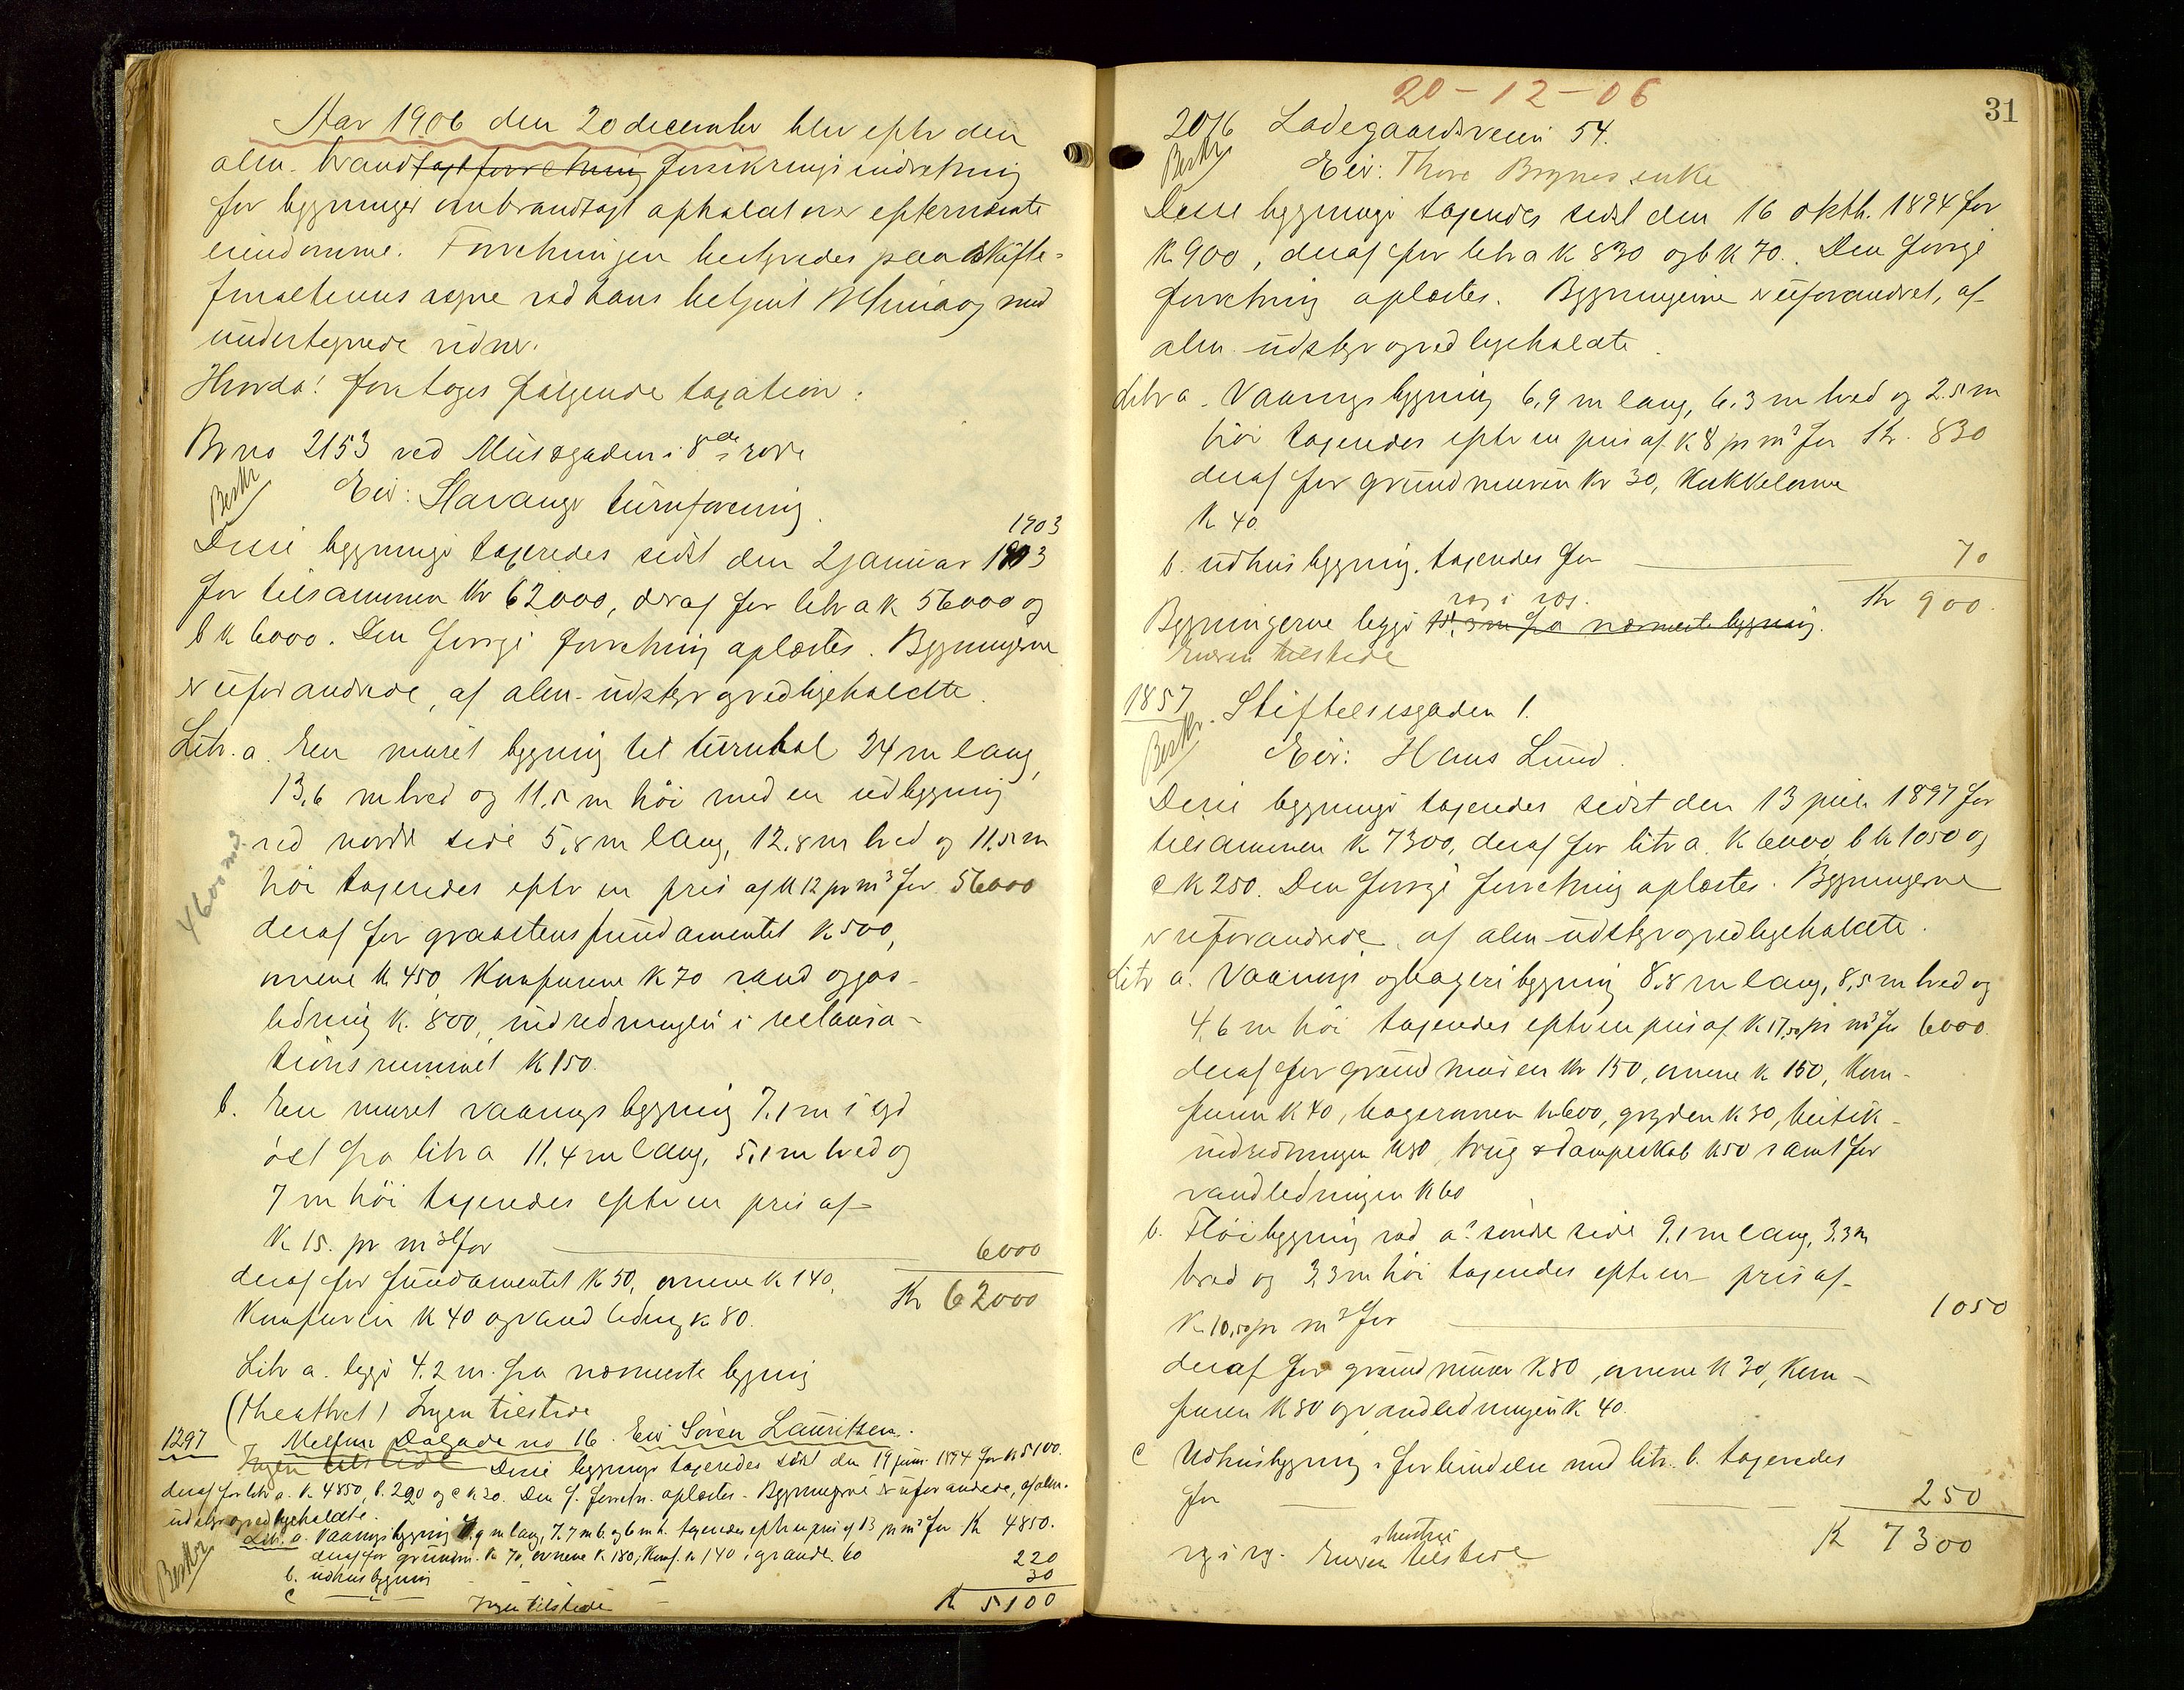 Aar 1906 den 20 december blev efter den
alm. brandtaxtforretning forsikringsindretning
for bygninger ombrandtaxt afholdt over efternævnte
eiendomme. Forretningen bestyredes paa skifte-
forvalterens vegne ved hans betjent med
undertegnede vidner.
Hvorda! foretoges følgende taxation:
Br no 2153 ved Musegaden i 8de rode
Beskr
Eier: Stavanger turnforening.
1903
Disse bygninger taxeredes sidst den 2 januar 1903
for tilsammen Kr 62000, deraf for litr a K 56000 og
b K 6000. Den forrige forretning oplæstes. Bygningerne
er uforandrede, af alm. udstyr og vedligeholdte.
Litr. a. En muret bygning til turnhal 24 m lang,
13,6 m bred og 11,5 m høi med en udbygning
ved nordre side 5,8 m lang, 12,8 m bred og 11,5 m
4600 m3
høi taxeredes efter en pris af K 12 pr m3 for 56000
deraf for graastensfundamentet K 500,
ovnene K 450, Komfurene K 70 vand og gas-
ledning K. 800, indredningen i
K 150.
b. En muret vaaningsbygning 7,1 m i syd
øst fra litr a 11,4 m lang, 5,1 m bred og
7 m høi taxeredes efter en pris af
K 15. pr m3 for 6000
deraf for fundamentet K 50, ovnene K 140, Kr 62000
Komfuren K 40 og vandledning K 80.
Litr a. ligger 4.2 m. fra nærmeste bygning
(theathret) Ingen tilstede
1297 Mellem Dalgade no 16. Eier Søren Lauritsen.
Ingen tilstede Disse bygninger taxeredes sidst den 19 juni 1894 for K 5100.
deraf for litr a. K. 4850, b. 220 og c K 30. Den f. forretn. oplæstes. Bygningerne er uforandrede, af alm.
udstyr og vedligeholdte.
Litr. a. Vaaningsbygning 9 m lang, 7.7 m b. og 6 m h. taxeredes efter en pris af 13 pr m3 for K 4850.
Beskr
deraf for grundm. K 70, ovnene K 180, Komf. K 140 60
b. udhusbygning 220
c — — 30
Ingen tilstede — K 5100
20-12-06
31
2016 Ladegaardsveien 54.
Beskr
Eier: Thore Brynes enke
Disse bygninger taxeredes sidst den 16 oktb. 1894 for
K 900, deraf for litr a K 830 og b K 70. Den forrige
forretning oplæstes. Bygningerne er uforandret, af
alm. udstyr og vedligeholdte.
Litr a. Vaaningsbygning 6,9 m lang, 6,3 m bred og 2.5 m
høi taxeredes efter en pris af K 8 pr m3 for Kr. 830
deraf for grundmuren Kr 30, Kakkelovne
K 40.
b. udhusbygning, taxeredes for 70
Kr 900.
væg i væg.
Bygningerne ligger 3 m fra nærmeste bygning.
Eieren tilstede
1857. Stiftelsesgaden 1.
Beskr
Eier: Hans Lund.
Disse bygninger taxeredes sidst den 13 1897 for
tilsammen K 7300, deraf for litr a. K 6000, b K 1050 og
c K 250. Den forrige forretning oplæstes. Bygningerne
er uforandrede, af alm udstyr og vedligeholdte.
Litr a. Vaanings og bageribygning 8.8 m lang, 8,5 m bred og
4,6 m høi taxeredes efter en pris af K 17,50 pr m3 for 6000.
deraf for grundmuren Kr 150, ovnene K 150, Kom-
furen K 40, bagerovnen K 600, gryden K 30, butik-
indredningen K 80, trug & dampeskab K 50 samt for
vandledningen K 60
b. Fløibygning ved a's søndre side 9,1 m lang, 3,3 m
bred og 3,3 m høi taxeredes efter en pris af
K 10,50 pr m3 for 1050
deraf for grundmuren K 80, ovnene K 30, Kom-
furen K 80 og vandledningen K 40.
c Udhusbygning i forbindelse med litr. b. taxeredes
for 250
K 7300
væg i væg. Eieren tilstede